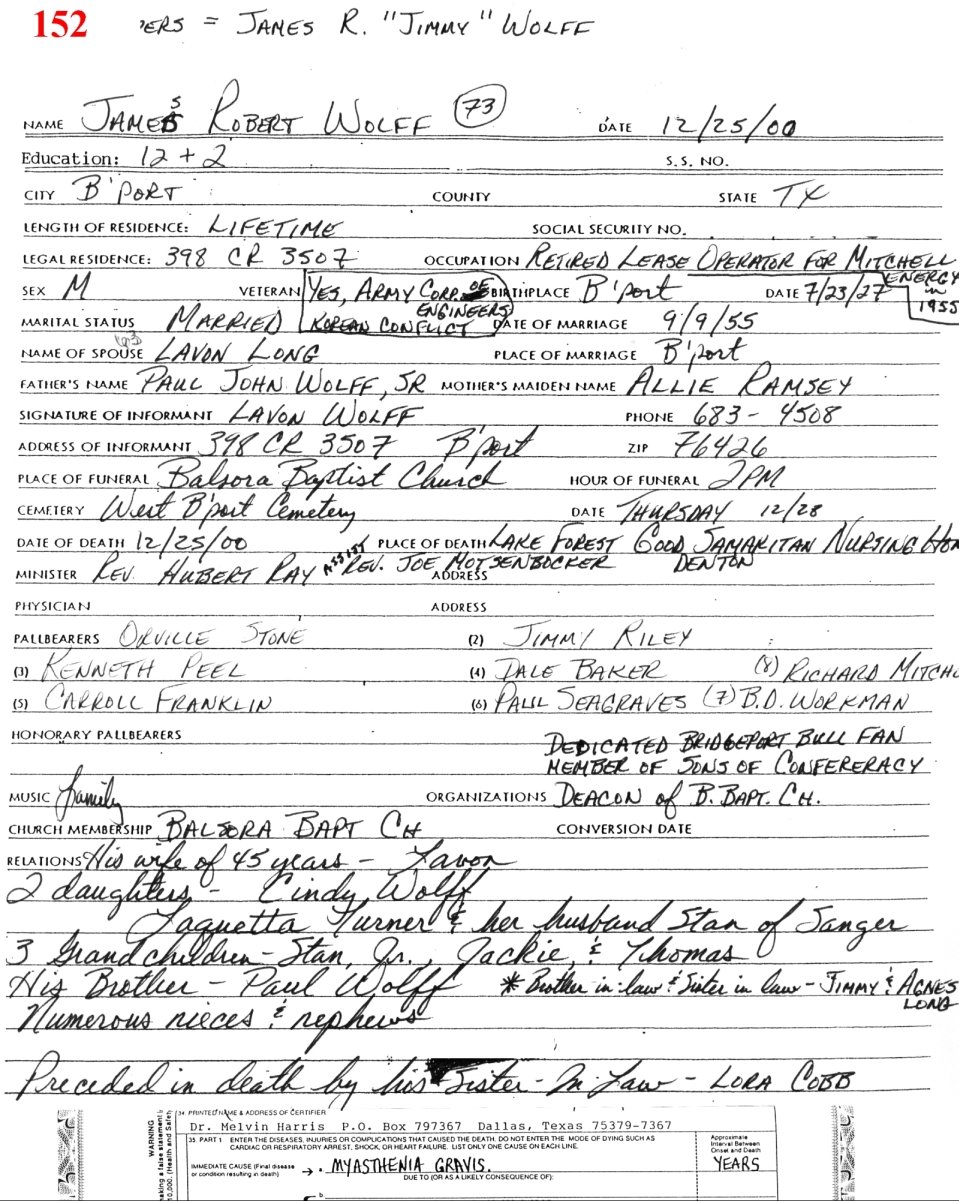 152 'ERS = JAMES R. "JIMMY" WOLFF
NAME JAMES ROBERT WOLFF 73 DATE 12/25/00
Education: 12 + 2 S.S. NO.
CITY B'PORT COUNTY STATE TX
LENGTH OF RESIDENCE: LIFETIME SOCIAL SECURITY NO.
LEGAL RESIDENCE: 398 CR 3507 OCCUPATION RETIRED LEASE OPERATOR FOR MITCHELL ENERGY in 1955
SEX M VETERAN YES, ARMY CORP. OF ENGINEERS KOREAN CONFLICT BIRTHPLACE B'port DATE 7/23/27
MARITAL STATUS MARRIED DATE OF MARRIAGE 9/9/55
NAME OF SPOUSE LAVON LONG PLACE OF MARRIAGE B'port
FATHER'S NAME PAUL JOHN WOLFF, SR MOTHER'S MAIDEN NAME ALLIE RAMSEY
SIGNATURE OF INFORMANT LAVON WOLFF PHONE 683-4508
ADDRESS OF INFORMANT 398 CR 3507 B'port ZIP 76426
PLACE OF FUNERAL Balsora Baptist Church HOUR OF FUNERAL 2PM
CEMETERY West B'port Cemetery DATE THURSDAY 12/28
DATE OF DEATH 12/25/00 PLACE OF DEATH LAKE FOREST GOOD SAMARITAN NURSING HOM DENTON
MINISTER REV. HUBERT RAY ASSIST REV. JOE MOTSENBOCKER ADDRESS
PHYSICIAN ADDRESS
PALLBEARERS ORVILLE STONE (2) JIMMY RILEY
(3) KENNETH PEEL (4) DALE BAKER (8) RICHARD MITCH
(5) CARROLL FRANKLIN (6) PAUL SEAGRAVES (7) B.D. WORKMAN
HONORARY PALLBEARERS
DEDICATED BRIDGEPORT BULL FAN
MEMBER OF SONS OF CONFERERACY
MUSIC family ORGANIZATIONS DEACON of B. BAPT. CH.
CHURCH MEMBERSHIP BALSORA BAPT CH CONVERSION DATE
RELATIONS His wife of 45 years - Lavon
2 daughters - Cindy Wolff
Laquetta Turner & her husband Stan of Sanger
3 Grandchildren - Stan, Jr., Jackie, & Thomas
His Brother - Paul Wolff * Brother in-law & Sister in law - JIMMY & AGNES LONG
Numerous nieces & nephews
Preceded in death by his Sister-In-Law - LORA COBB
34. PRINTED NAME & ADDRESS OF CERTIFIER
Dr. Melvin Harris P.O. Box 797367 Dallas, Texas 75379-7367
35. PART 1 ENTER THE DISEASES, INJURIES OR COMPLICATIONS THAT CAUSED THE DEATH. DO NOT ENTER THE MODE OF DYING SUCH AS
CARDIAC OR RESPIRATORY ARREST, SHOCK, OR HEART FAILURE. LIST ONLY ONE CAUSE ON EACH LINE.
Approximate Interval Between Onset and Death
IMMEDIATE CAUSE (Final disease or condition resulting in death) → a. MYASTHENIA GRAVIS. YEARS
DUE TO (OR AS A LIKELY CONSEQUENCE OF):
b
WARNING
making a false statement
10,000. (Health and Safety